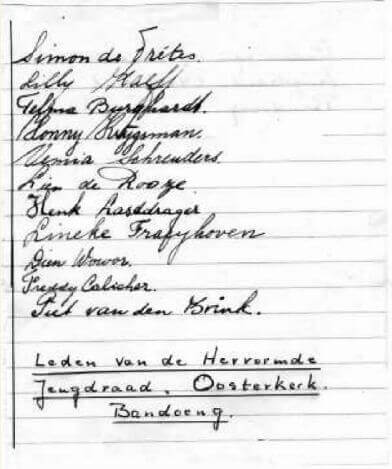 Simon de Frètes.
Lilly Kalff
Telma Burghardt.
Conny Kuijsman.
Usmia Schreuders.
Lien de Rooze.
Henk Lastdrager
Lineke Trafijhoven
Dien Wowor.
Freddy Calicher.
Piet van den Brink.
Leden van de Hervormde
Jeugdraad, Oosterkerk.
Bandoeng.